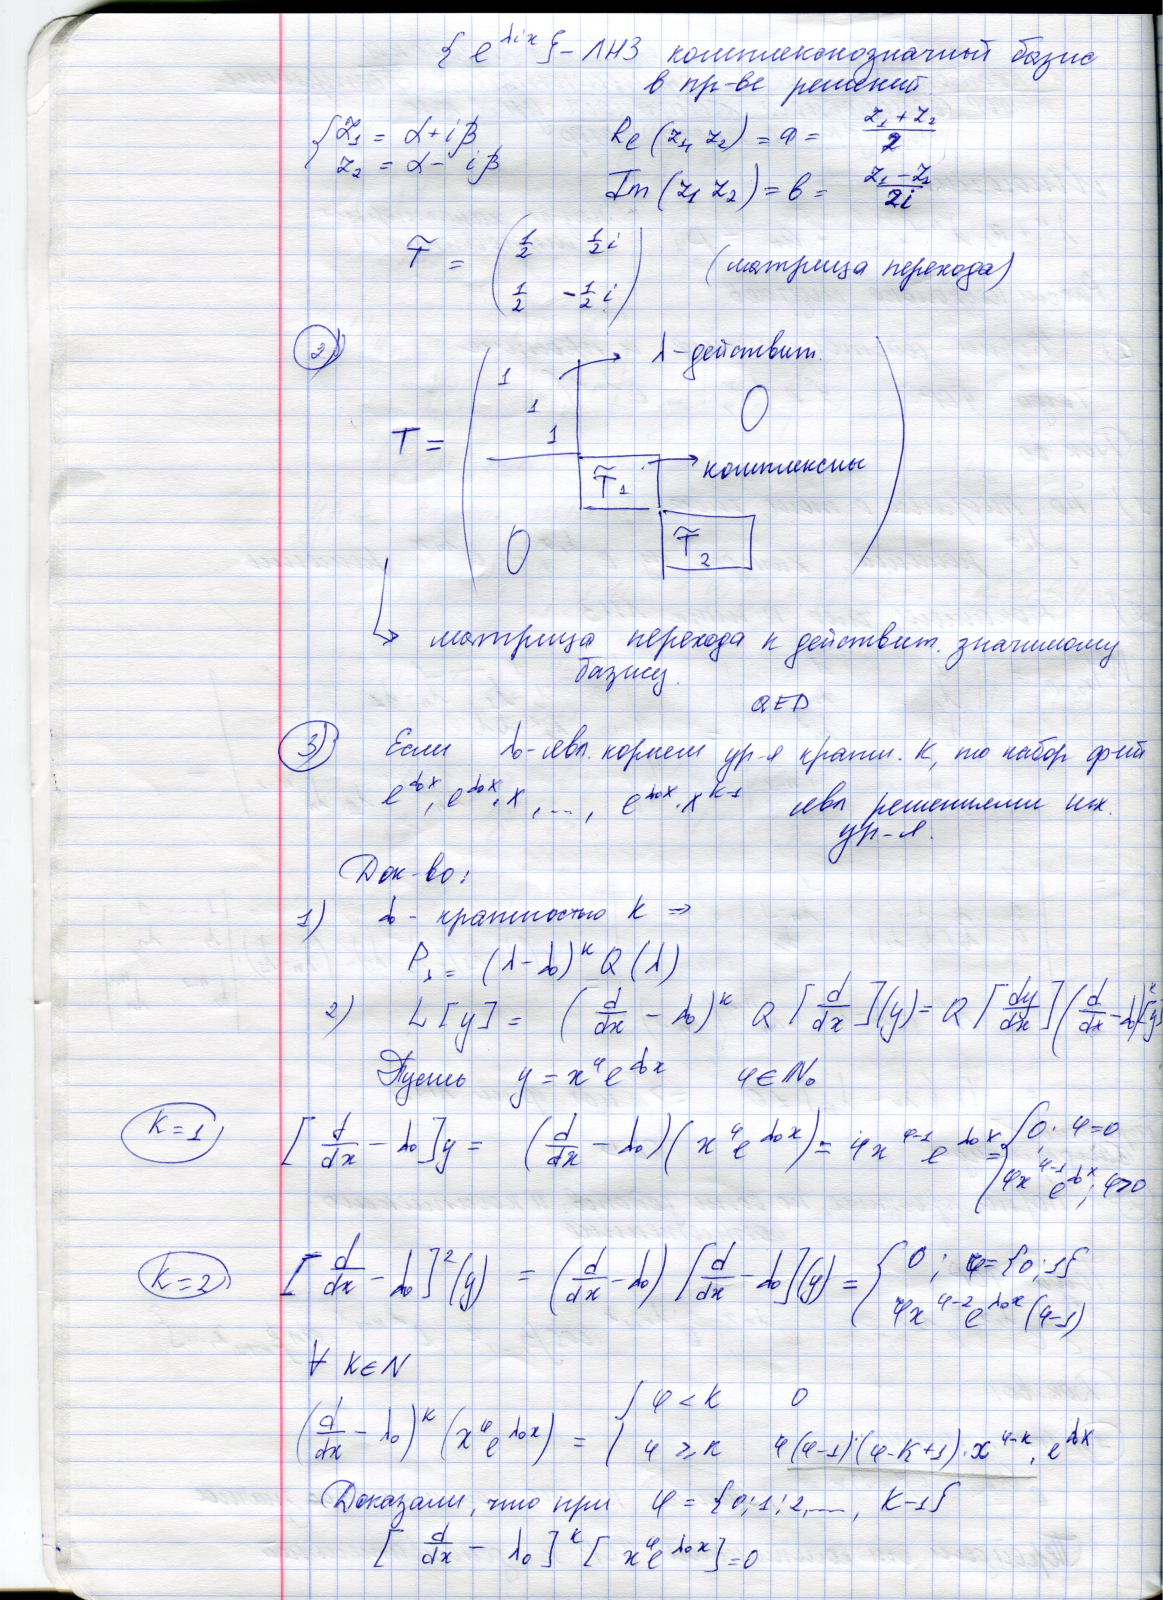 { e^{λix} } - ЛНЗ комплекснозначный базис
в пр-ве решений
{ z₁ = α + iβ
z₂ = α - iβ
Re (z₁, z₂) = α = (z₁ + z₂)/2
Im (z₁ z₂) = β = (z₁ - z₂)/2i
T̃ = ( 1/2 1/2 i
1/2 -1/2 i ) (матрица перехода)
2)
1 → λ-действит.
1 0
T = 1
T̃₁ → комплексны
0 T̃₂
↳ матрица перехода к действит. значимому
базису.
QED
3) Если λ₀-явл. корнем ур-я кратн. K, то набор ф-ий
e^{λ₀x}, e^{λ₀x}·x, ..., e^{λ₀x}·x^{K-1} явл решениями
ур-я.
Док-во:
1) λ₀ - кратностью K ⇒
P_λ = (λ-λ₀)^K Q(λ)
2) L[y] = (d/dx - λ₀)^K Q[d/dx](y) = Q[dy/dx](d/dx - λ₀)^K[y]
Пусть y = x^φ e^{λ₀x} φ ∈ N₀
K=1 [d/dx - λ₀]y = (d/dx - λ₀)(x^φ e^{λ₀x}) = φx^{φ-1} e^{λ₀x} = { 0; φ=0
φx^{φ-1} e^{λ₀x}; φ>0
K=2 [d/dx - λ₀]²(y) = (d/dx - λ₀)[d/dx - λ₀](y) = { 0; φ={0;1}
φx^{φ-2} e^{λ₀x}(φ-1)
∀ K∈N
(d/dx - λ₀)^K (x^φ e^{λ₀x}) = { φ < K 0
φ ≥ K φ(φ-1)·(φ-K+1)·x^{φ-K}·e^{λ₀x}
Доказали, что при φ = {0;1;2,..., K-1}
[d/dx - λ₀]^K [x^φ e^{λ₀x}] = 0